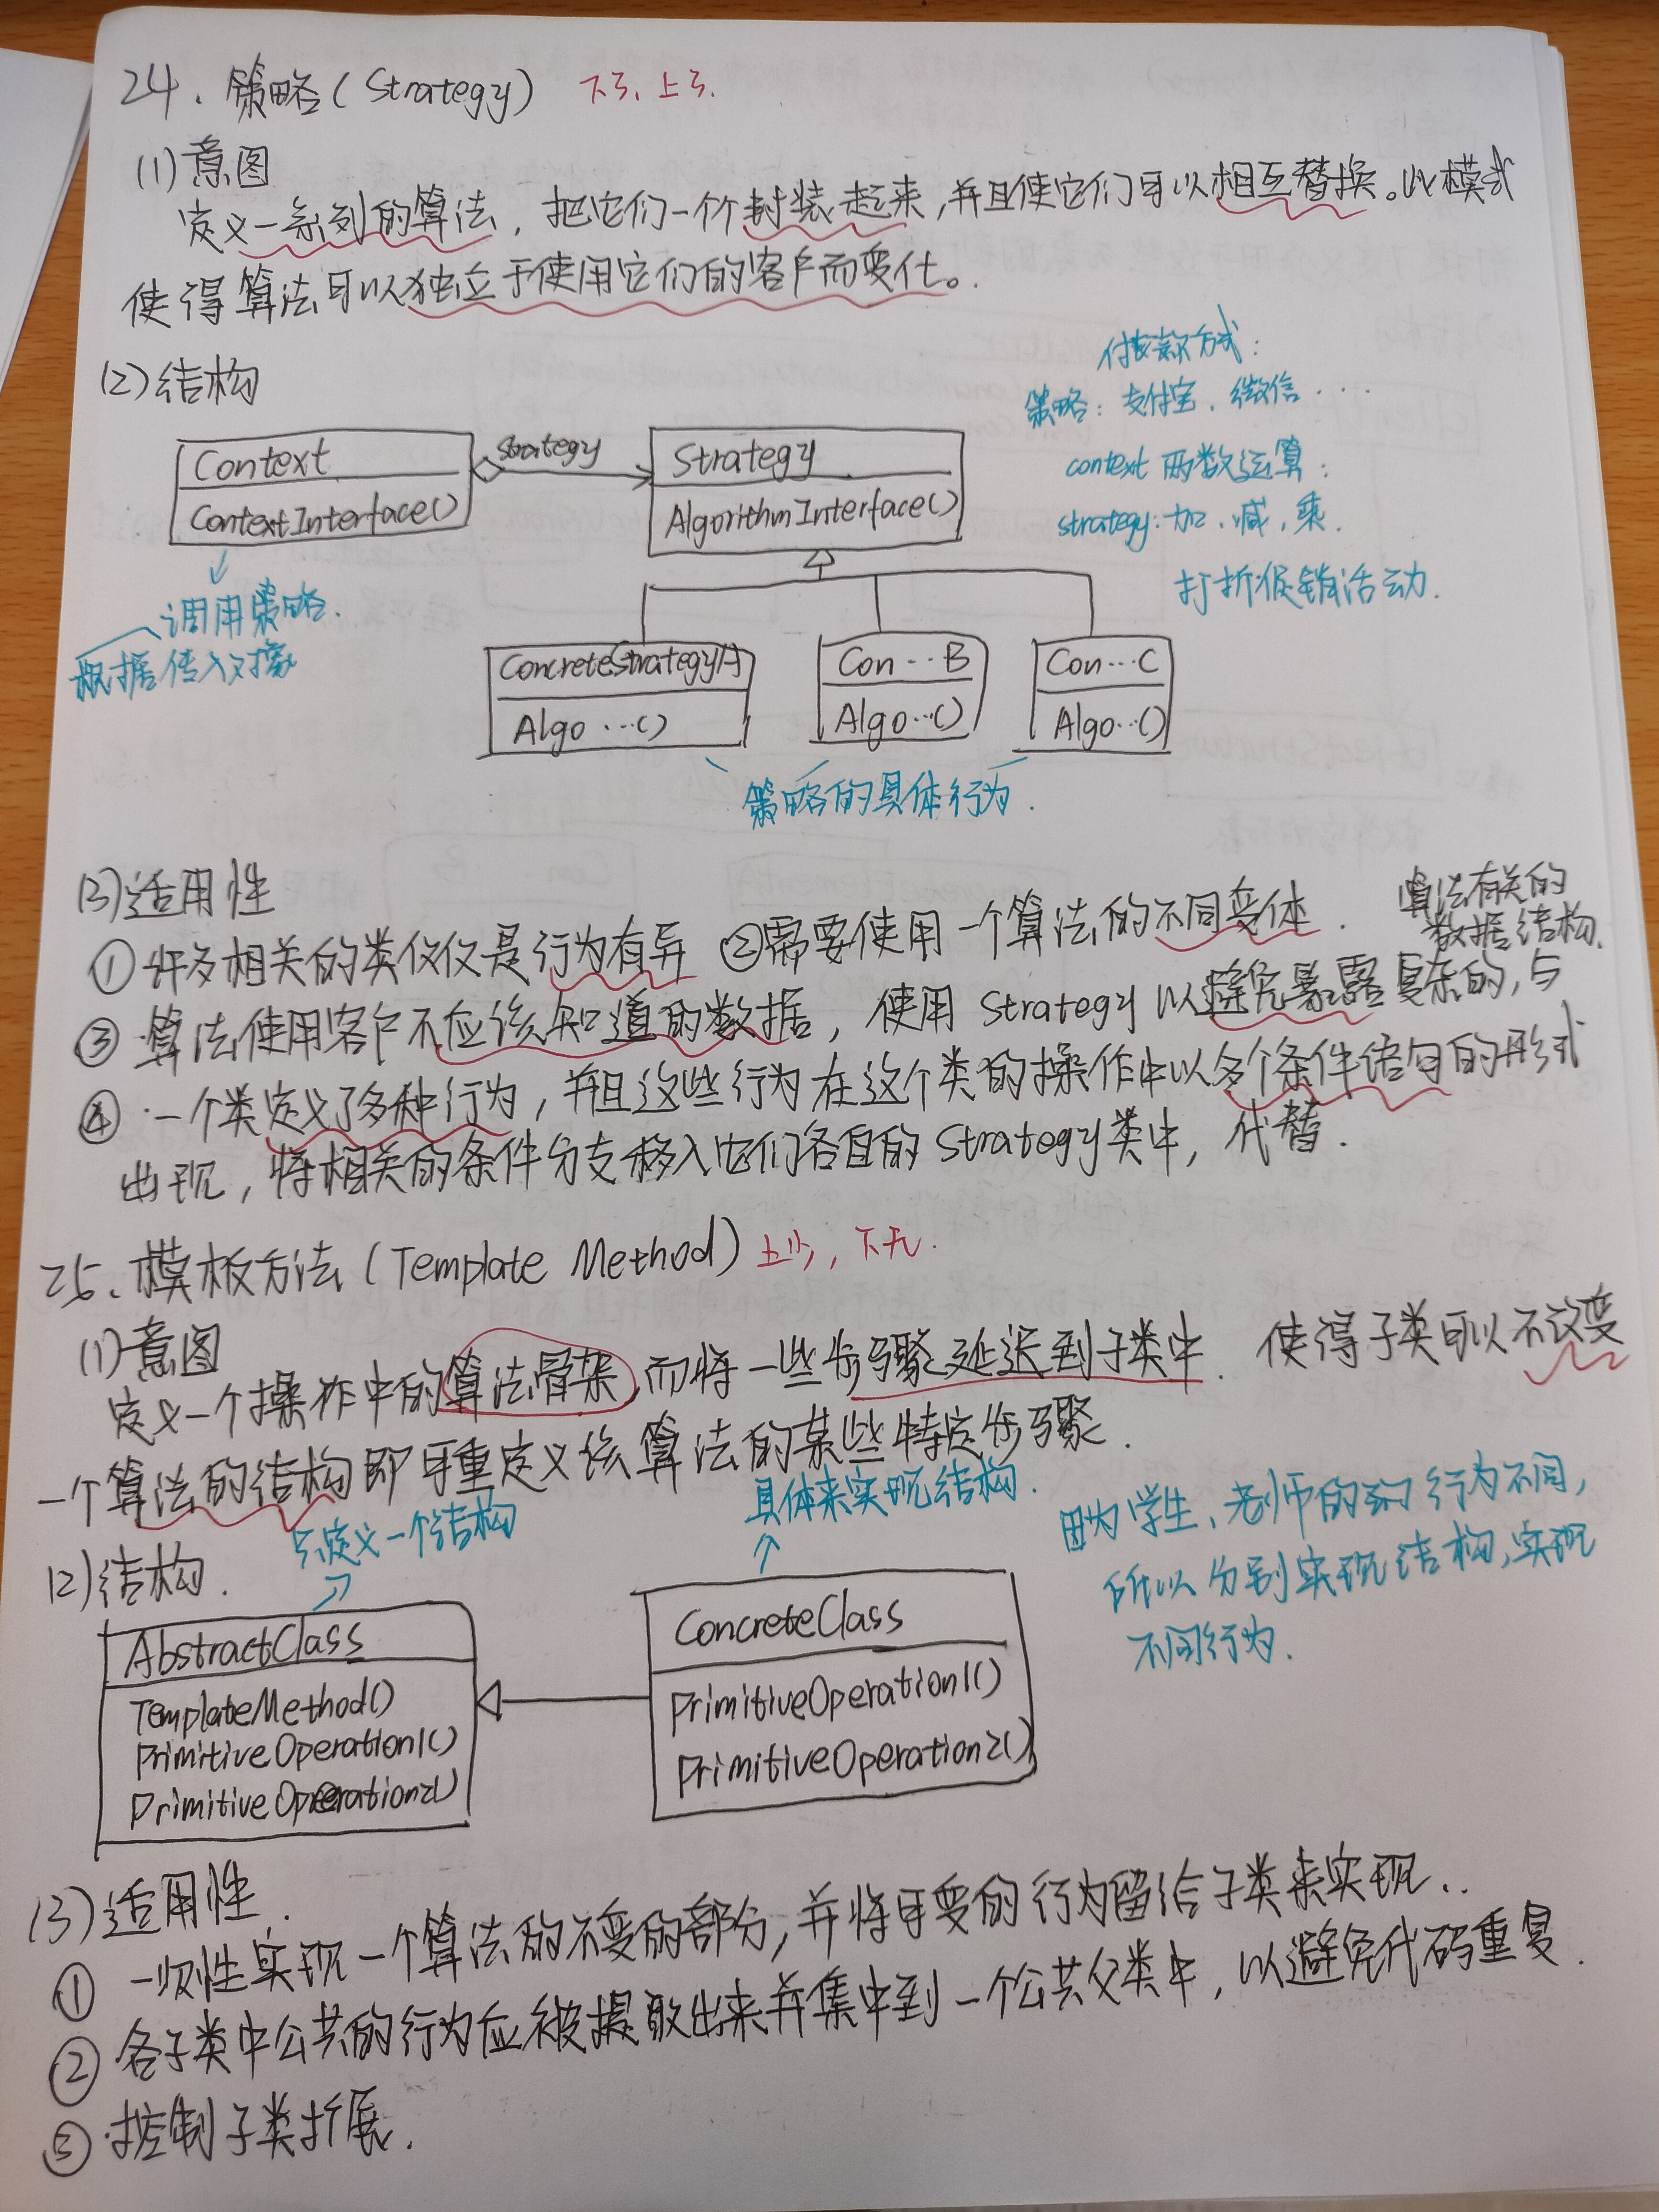 24、策略(Strategy) 下3、上3.
(1)意图
定义一系列的算法，把它们一个个封装起来，并且使它们可以相互替换。此模式
使得算法可以独立于使用它们的客户而变化。
(2)结构
付款方式：
策略：支付宝、微信....
context 两数运算：
strategy：加、减，乘.
打折促销活动.
Context
ContextInterface()
strategy
Strategy
AlgorithmInterface()
调用策略.
根据传入对象
ConcreteStrategyA
Algo ...()
Con...B
Algo...()
Con...C
Algo...()
策略的具体行为.
(3)适用性
①许多相关的类仅仅是行为有异 ②需要使用一个算法的不同变体.
③算法使用客户不应该知道的数据，使用 Strategy 以避免暴露复杂的，与
算法有关的
数据结构.
④一个类定义了多种行为，并且这些行为在这个类的操作中以多个条件语句的形式
出现，将相关的条件分支移入它们各自的 Strategy类中，代替.
25、模板方法(Template Method) 上少，下无.
(1)意图
定义一个操作中的算法骨架，而将一些步骤延迟到子类中. 使得子类可以不改变
一个算法的结构即可重定义该算法的某些特定步骤.
只定义一个结构
具体来实现结构.
因为学生、老师的 行为不同，
所以分别实现结构，实现
不同行为.
(2)结构.
AbstractClass
TemplateMethod()
PrimitiveOperation1()
PrimitiveOperation2()
ConcreteClass
PrimitiveOperation1()
PrimitiveOperation2()
(3)适用性.
①一次性实现一个算法的不变的部分，并将可变的行为留给子类来实现..
②各子类中公共的行为应被提取出来并集中到一个公共父类中，以避免代码重复.
③控制子类扩展.